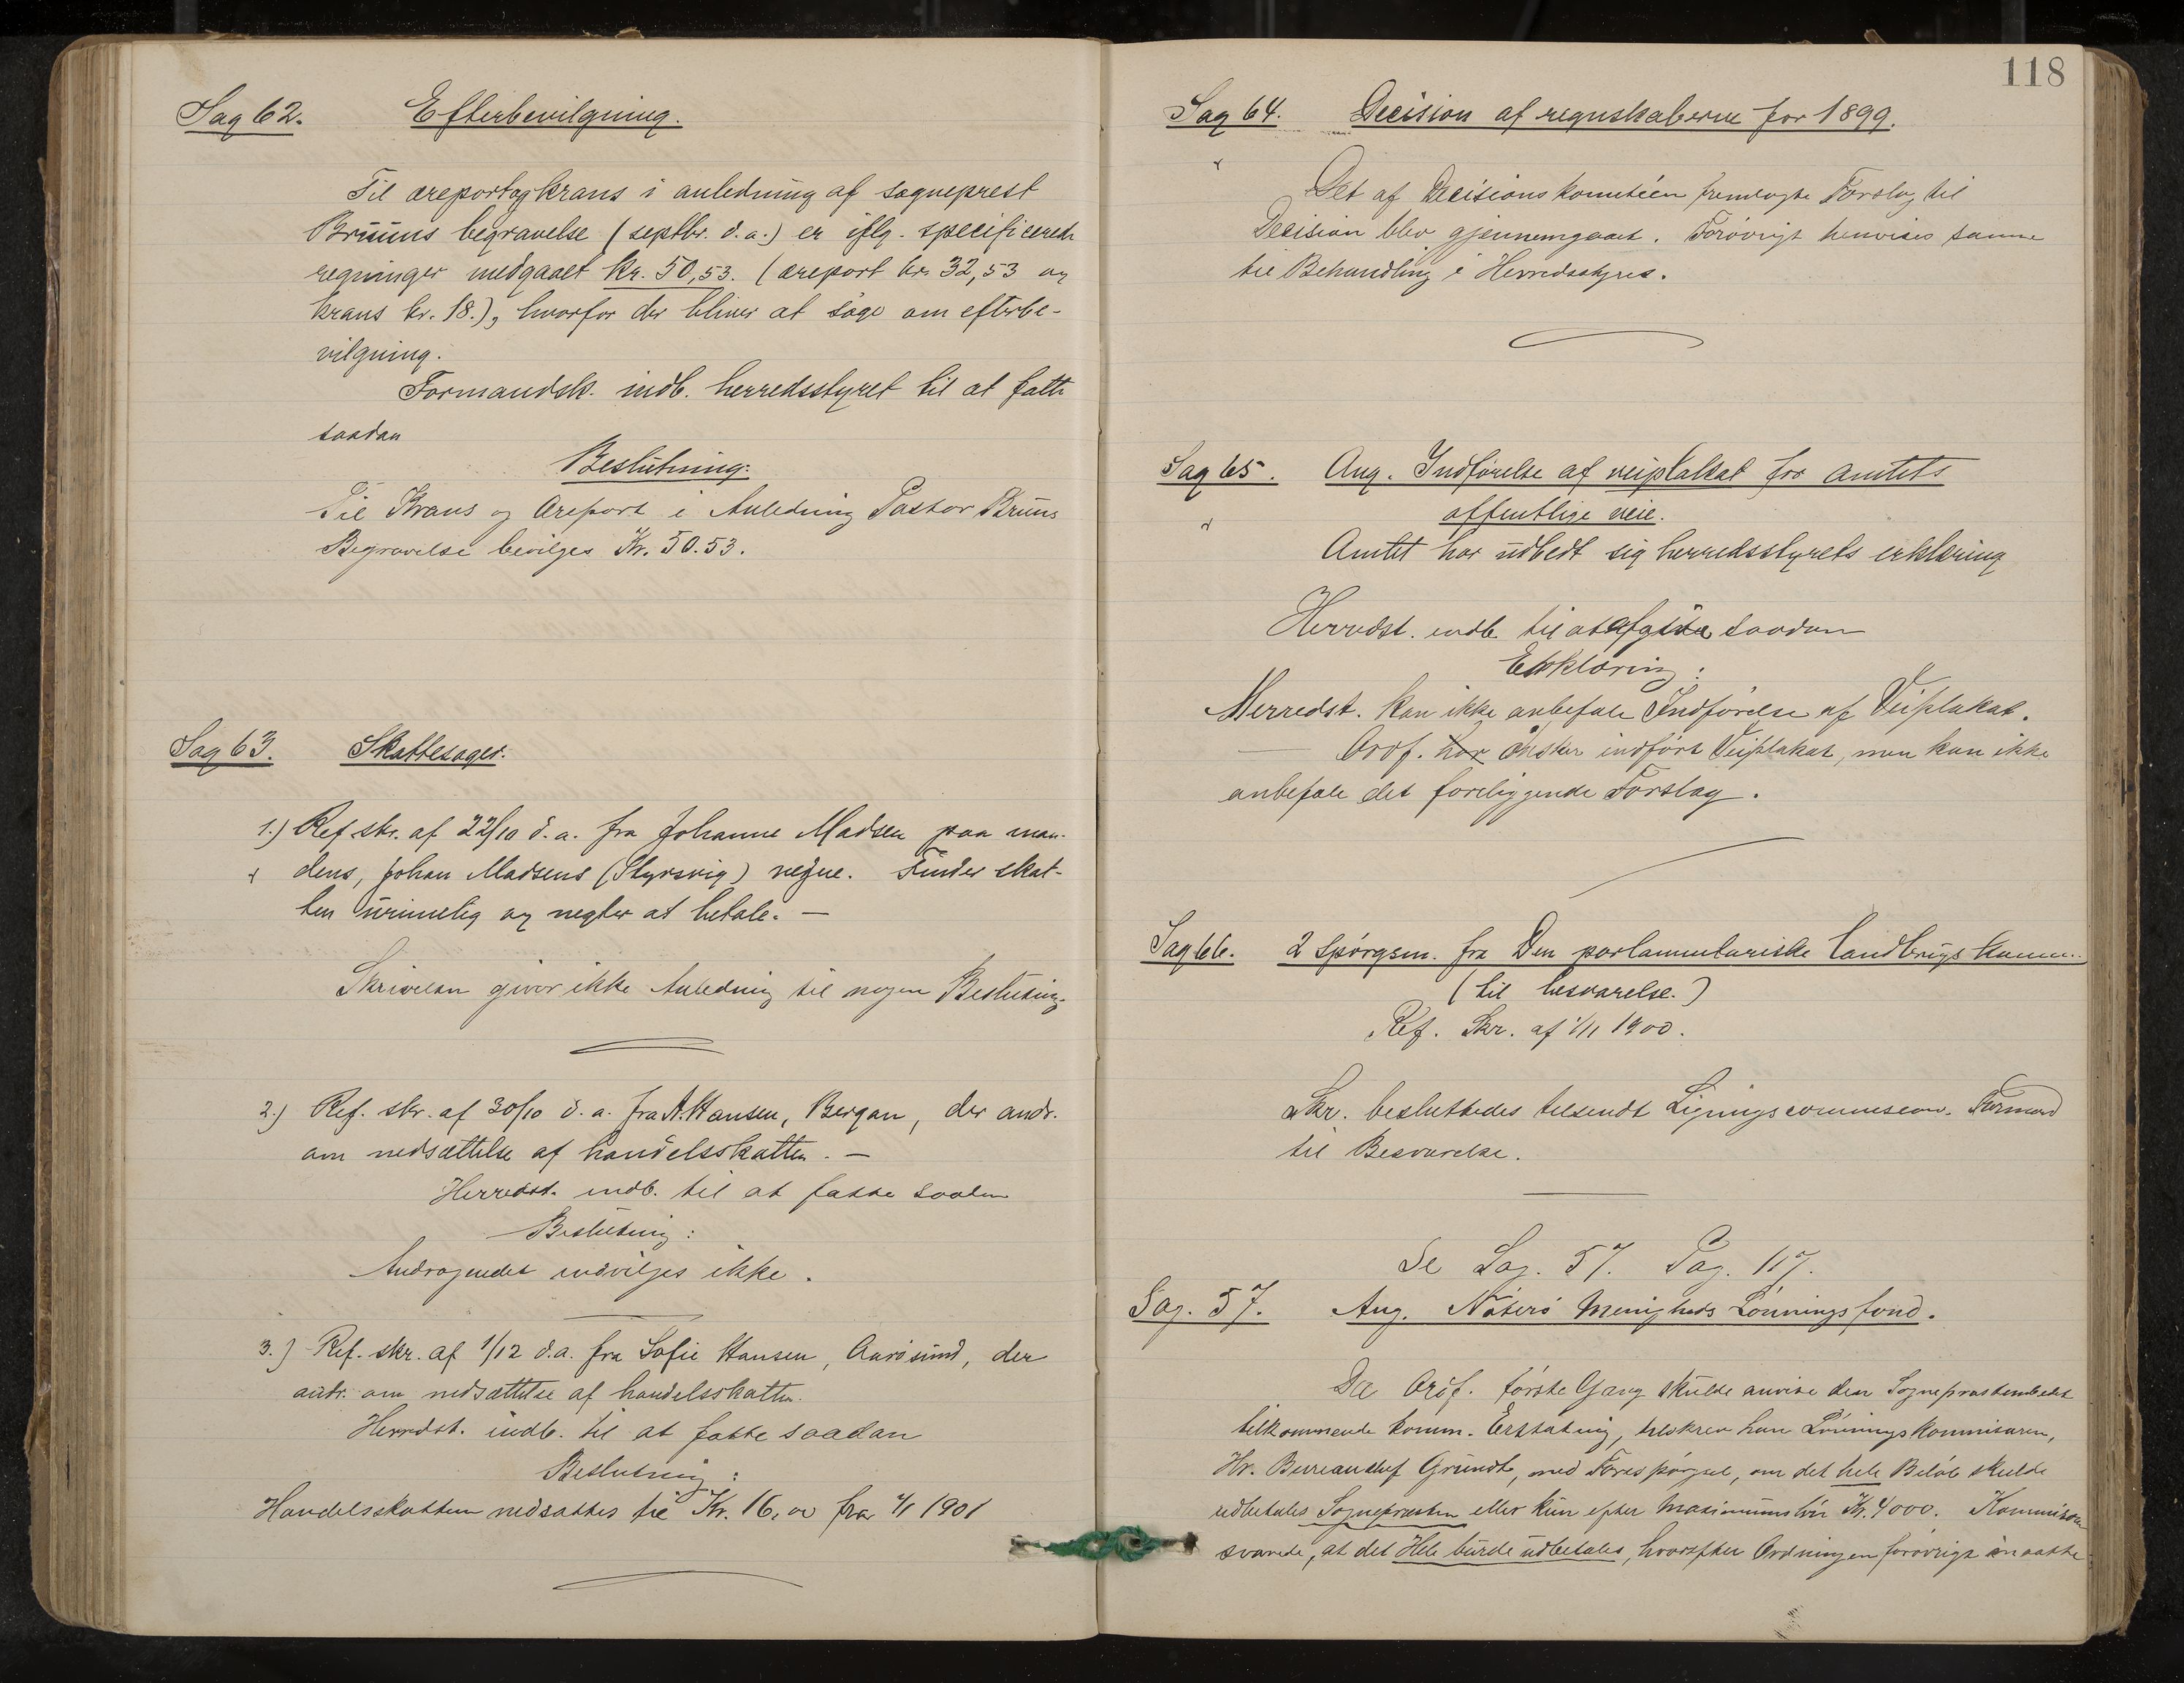 Sag 62. Efterbevilgning.
Til æreport og krans i anledning af sogneprest
Bruuns begravelse (septbr. d.a.) er iflg. specificerede
regninger medgaaet kr. 50,53. (æreport kr. 32,53 og
krans kr. 18.), hvorfor der bliver at søge om efterbe-
vilgning.
Formandsk. indb. herredsstyret til at fatte
saadan
Beslutning:
Til Krans og Æreport i Anledning Pastor Bruns
Begravelse bevilges Kr. 50.53.
Sag 63. Skattesager.
1.) Ref. skr. af 22/10 d.a. fra Johanne Madsen paa man-
dens, Johan Madsens (Styrsvig) vegne. Finder skat-
ten urimelig og negter at betale. —
Skrivelsen giver ikke Anledning til nogen Beslutning.
2.) Ref. skr. af 30/10 d.a. fra A. Hansen, Bergan, der andr.
om nedsættelse af handelsskatten. —
Herredst. indb. til at fatte saadan
Beslutning:
Andragendet indvilges ikke.
3.) Ref. skr. af 1/12 d.a. fra Sofie Hansen, Aarøsund, der
andr. om nedsættelse af handelsskatten.
Herredst. indb. til at fatte saadan
Beslutning:
Handelsskatten nedsættes til Kr. 16,00 fra 1/1 1901
118
Sag 64. Decision af regnskaberne for 1899.
Det af Decisionskomitéen fremlagte Forslag til
Decision blev gjennemgaaet. Forøvrigt henvises samme
til Behandling i Herredsstyret.
Sag 65. Ang. Indførelse af veiplakat for amtets
offentlige veie.
Amtet har udbedt sig herredsstyrets erklæring
Herredst. indb. til at afgive saadan
Erklæring:
Herredst. kan ikke anbefale Indførelse af Veiplakat.
— Ordf. har ønsker indført Veiplakat, men kan ikke
anbefale det foreliggende Forslag.
Sag 66. 2 spørgsm. fra Den parlamentariske landbrugskomm.
(til besvarelse.)
Ref. Skr. af 1/11 1900.
Skr. besluttedes tilsendt Ligningscommission. Formand
til Besvarelse.
Se Sag. 57. Pag. 117.
Sag. 57. Ang. Nøterø Menigheds Lønningsfond.
Da Ordf. første Gang skulde anvise den Sogneprestembedet
tilkommende komm. Erstatning, tilskrev han Lønningskommisæren,
Hr. Bureauchef Grundt, med Forespørgsel, om det hele Beløb skulde
udbetales Sognepresten eller kun efter Maximumsløn Kr. 4000. Kommisæren
svarede, at det Hele burde udbetales, hvorefter Ordningen forøvrigt